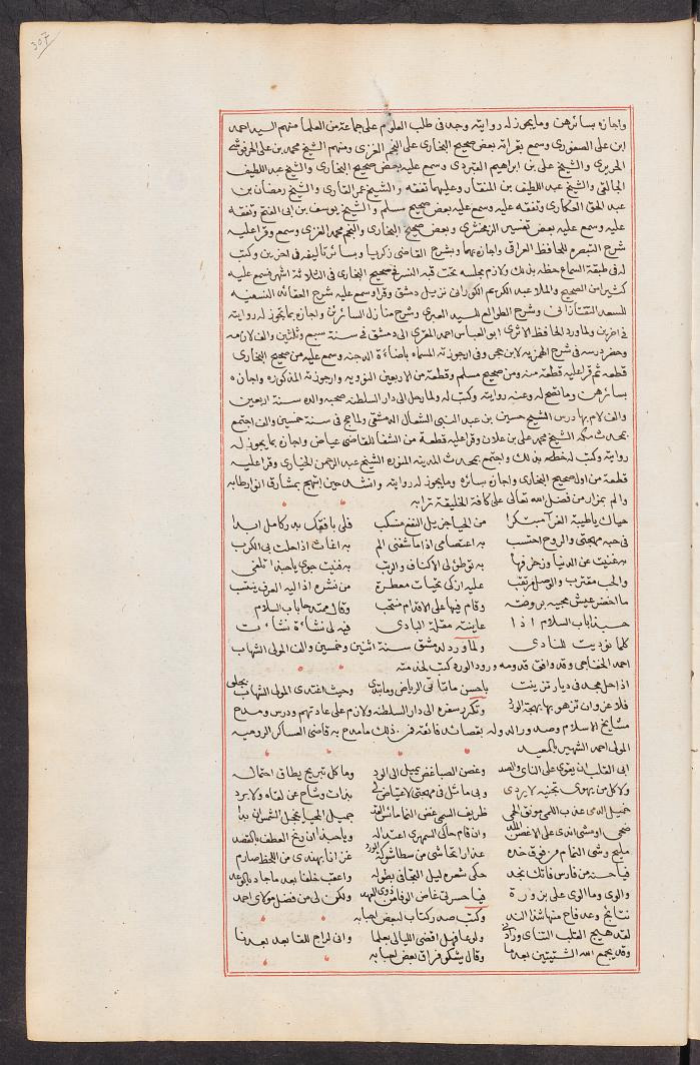 307
واجازه بسائرهن ومايجوز له روايته وجد فى طلب العلوم على جماعة من العلما منهم السيد احمد
ابن على الصفورى وسمع بقراته بعض صحيح البخارى على النجم الغزى ومنهم الشيخ محمد بن على الحرفوشى
الحريرى والشيخ على بن ابراهيم القبردى وسمع عليه بعض صحيح البخارى والشيخ عبد اللطيف
الجالقى والشيخ عبد اللطيف بن المنقار وعليهما تفقه والشيخ عمر القارى والشيخ رمضان بن
عبد الحق العكارى وتفقه عليه وسمع عليه بعض صحيح مسلم والشيخ يوسف بن ابى الفتح وتفقه
عليه وسمع عليه بعض تفسير الزمخشرى وبعض صحيح البخارى والنجم محمد الغزى وسمع وقرا عليه
شرح التبصره للحافظ العراقى واجازه بها وبشرح القاضى زكريا وبسائر تاليفه فى اخرين وكتب
له فى طبقة السماع خطه بذلك ولازم مجلسه تحت قبه النسر فى صحيح البخارى فى الثلاثة اشهر فسمع عليه
كثيرا من الصحيح والملا عبد الكريم الكورانى نزيل دمشق وقرا وسمع عليه شرح العقائد النسفيه
للسعد التفتازانى وشرح الطوالع للسيد العبرى وشرح منازل السائرين واجازه بما يجوز له روايته
فى اخرين ولما ورد الحافظ الاثرى ابو العباس احمد المقرى الى دمشق فى سنة سبع وثلثين والف لازمه
وحضر درسه فى شرح الهمزيه لابن حجر وفى ارجوزته المسماه باضاءة الدجنه وسمع عليه من صحيح البخارى
قطعه ثم قرا عليه قطعة منه ومن صحيح مسلم وقطعة من الاربعين النوويه وارجوزته المذكوره واجازه
بسائرهن وما تصح له وعنه روايته وكتب له ولما رحل الى دار السلطنه صحبه والده سنة اربعين
والف لازم بها درس الشيخ حسين بن عبد النبى الشعال الدمشقى ولما حج فى سنة خمسين والف اجتمع
بمحدث مكه الشيخ محمد على بن علان وقرا عليه قطعة من الشفا للقاضى عياض واجازه بما يجوز له
روايته وكتب له خطه بذلك واجتمع بمحدث المدينه المنوره الشيخ عبد الرحمن الخيارى وقرا عليه
قطعة من اول صحيح البخارى واجازه سائره وما يجوز له روايته وانشد حين ابتهج بمشارق انوار طابه
والم بمزار من فضل الله تعالى على كافة الخليقة ترابه
حياك ياطيبة الغرآ مبتكرا من الحيا جزيل النفع منسكب فلى بافقك بدر كامل ابدا
فى حبه مهجتى والروح احتسب به اعتصامى اذا ما شفنى الم به اغاث اذا علت بى الكرب
به غنيت عن الدنيا وزخرفها به توطؤ لى الاكناف والرتب
والحب مقترب والوصل مرتقب عليه ازكى تحيات معطرة من نشره اذ اليه العرف ينتسب
ما اخضر عيش محبيه بروضته وقام فيها على الاقدام منتحب وقال ممتدحا باب السلام
حبذا باب السلام اذا عاينته مقلة البادى فيه لى نشاءة نشاءت
كلما نوديت للنادى ولما ورد لدمشق سنة اثنين وخمسين والف المولى الشهاب
احمد الخفاجى وقد وافق قدومه ورود الورد كتب لخدمته
اذ احل مجد فى ديار تزينت باحسن ماتاتى الرياض وما تبدى وحيث اغتدى المولى الشهاب بجلق
فلا غرو ان تزهو بها بهجة الورد وتكرر سفره الى دار السلطنه ولازم على عادتهم ودرس ومدح
مشايخ الاسلام وصدور الدوله بقصائد فائقه فمن ذلك مامدح به قاضى العساكر الروميه
المولى احمد الشهير بالمعيد
ابى القلب ان يقوى على الناى والصد وغصن الصبا غض يميل الى الورد وما كل تبريح يطاق احتماله
ولا كل من يهوى تجنيه لا يردى وبى مائل فى مهجتى لاعياض لى
ظريف السمى غض الشمائل جميل المحيا
ضحى او مشى ازرى على الاغصن الملد وان قام حاكى السمهرى اعتداله وياحبذا ان رنح العطف بالقصد
مليح وشى النمام من فوق خده عذار تحاشى من سطا شوكة الورد غزانا بهندى من اللحظ صارم
فيا حسنه من فارس فاتك نجد حكى شعره ليل التجافى بطوله واعقب خلفا بعد ماجاد بالوعد
والوى وما الوى على بن وره فيا حسرتى غاض الوفا من ذوى العهد ولكن لى من فضل مولاى احمد
نتائج وعد فاح منها شذا الند وكتب صدر كتاب لبعض احبابه
لقد هيج القلب التناى ورادنى ولى عاقل اقضى الليالى بعلما وانى لراج للقا بعد بعدنا
وقد يجمع الله الشتيتين بعد ما وقال يشكو فراق بعض احبابه